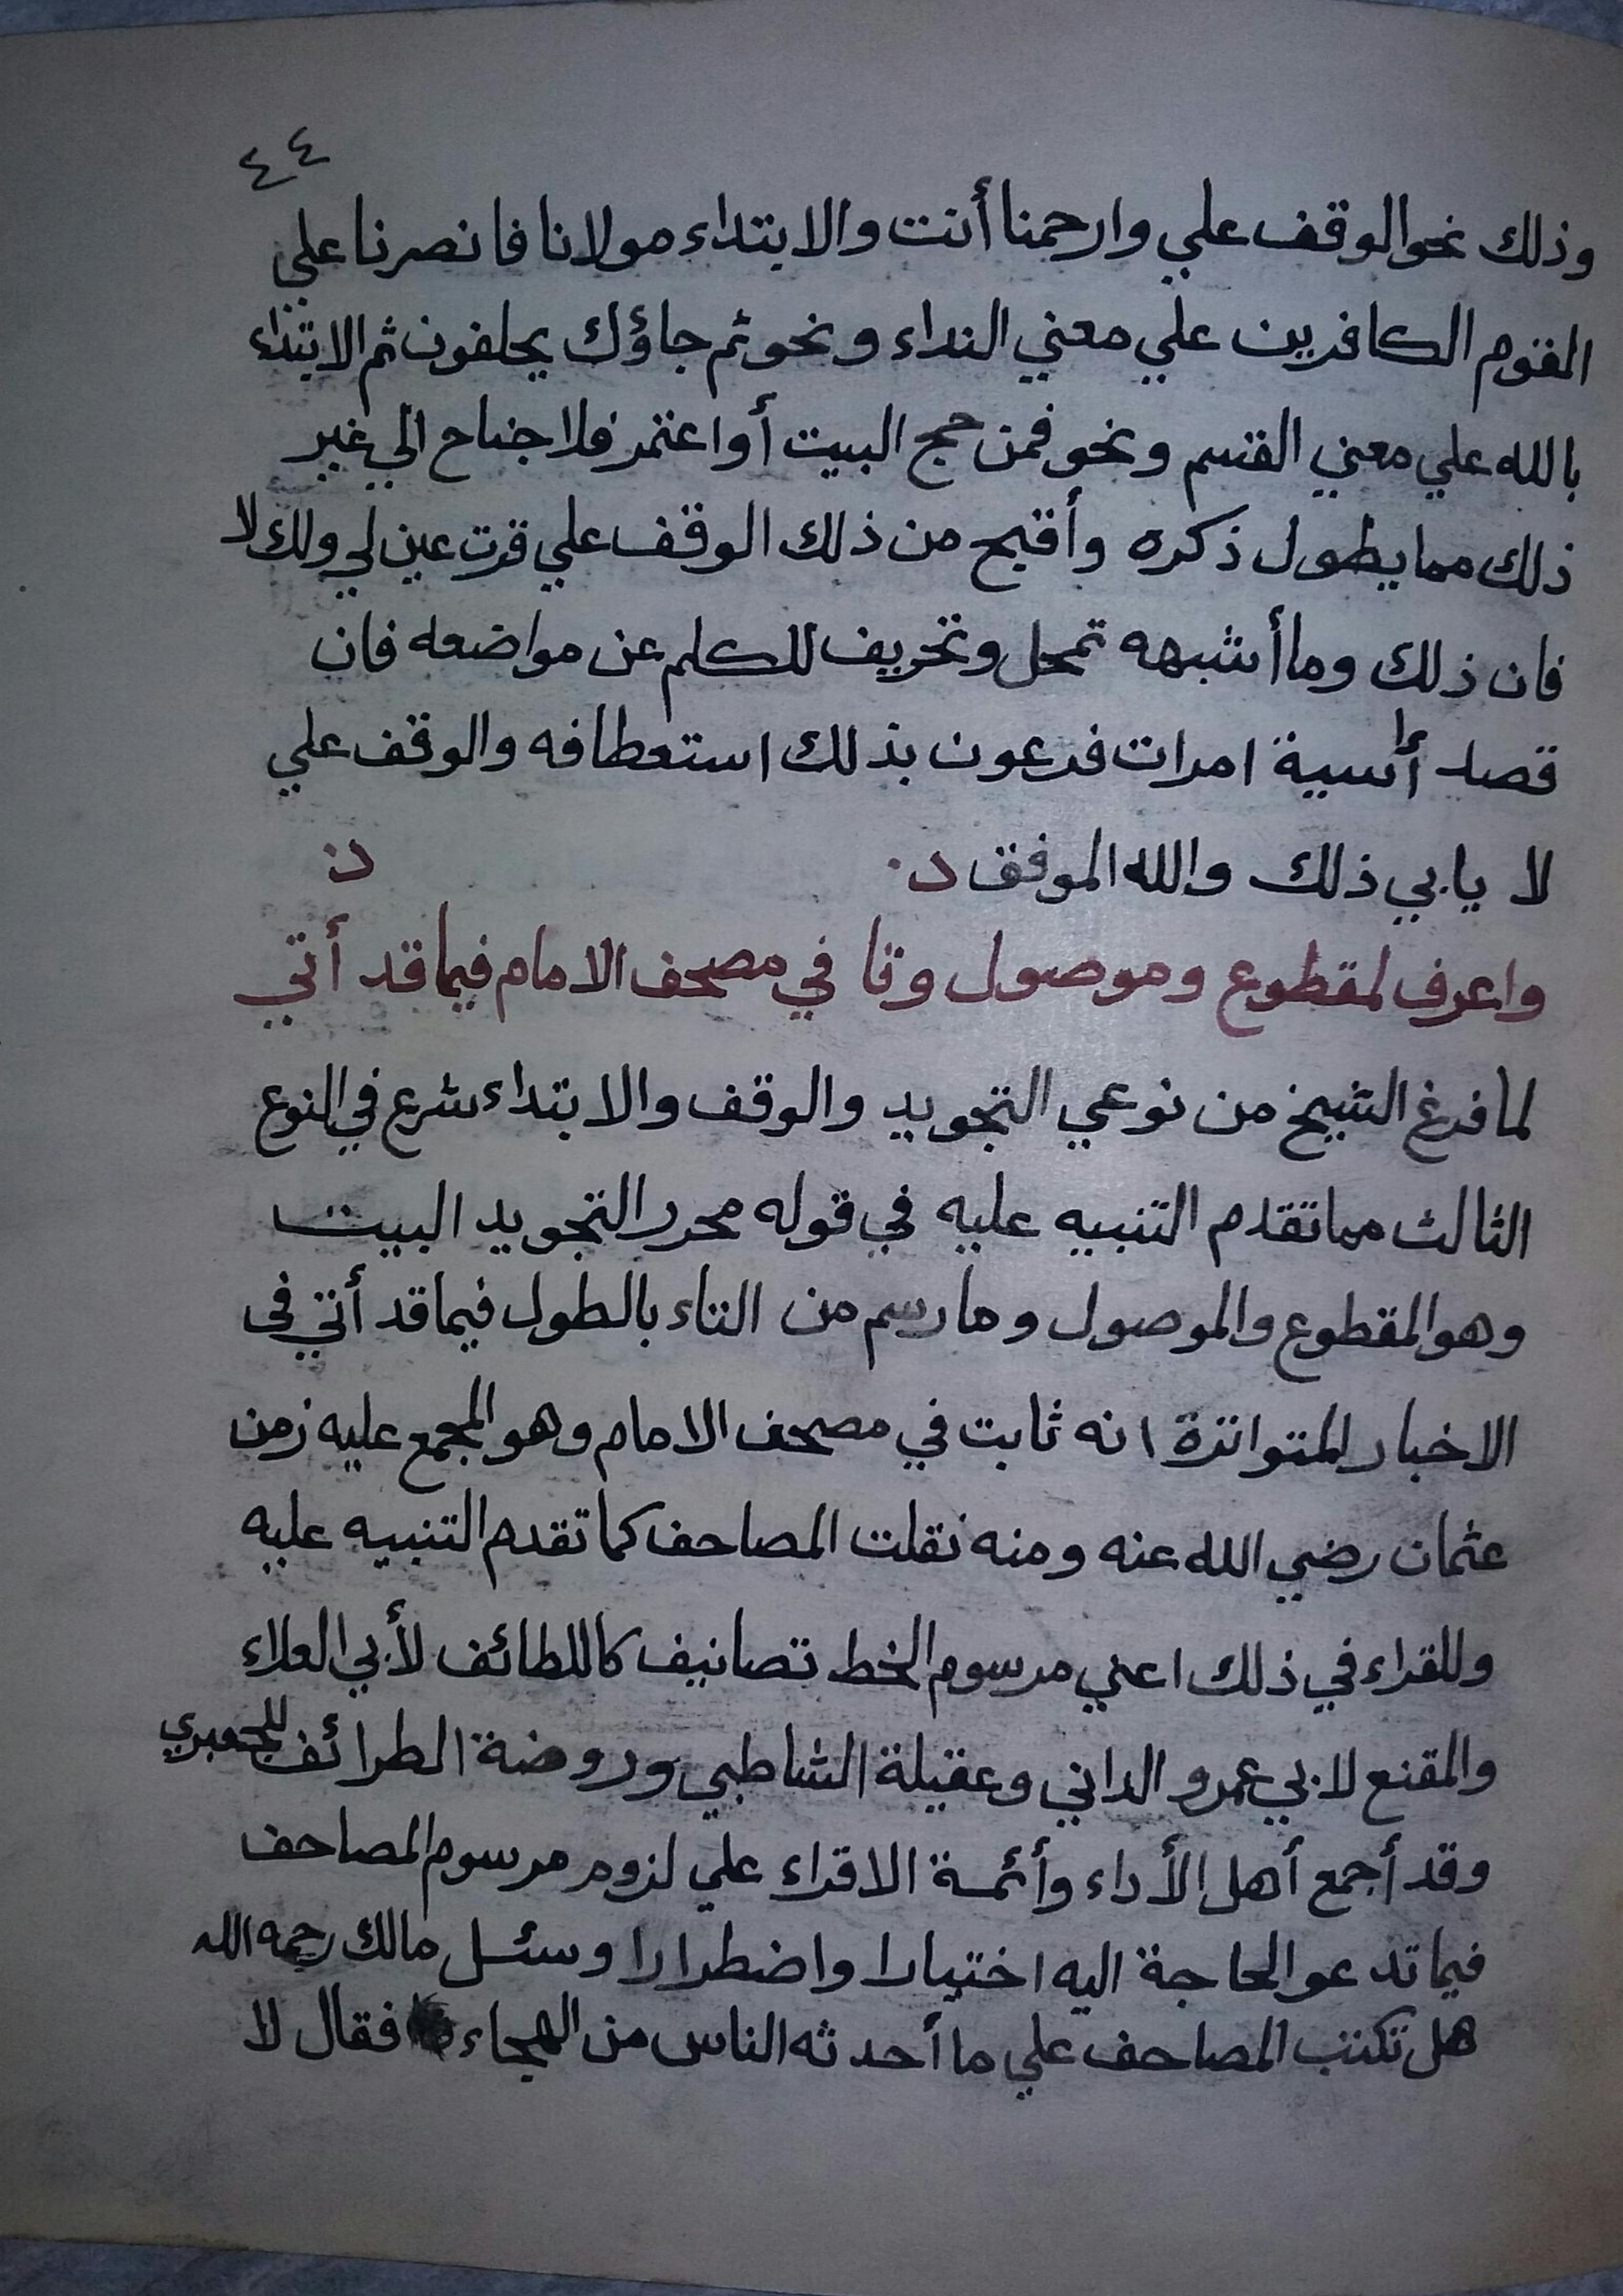 ٤٤
وذلك نحو الوقف علي وارحمنا أنت والابتداء مولانا فانصرنا علي
القوم الكافرين علي معني النداء ونحو ثم جاؤك يحلفون ثم الابتداء
بالله علي معني القسم ونحو فمن حج البيت أو اعتمر فلا جناح الي غير
ذلك مما يطول ذكره وأقبح من ذلك الوقف علي قرت عين لي ولك لا
فان ذلك وما أشبهه تمحل وتحريف للكلم عن مواضعه فان
قصد أسية امرات فرعون بذلك استعطافه والوقف علي
لا يابي ذلك والله الموفق
واعرف لمقطوع وموصول وتا في مصحف الامام فيما قد أتي
لما فرغ الشيخ من نوعي التجويد والوقف والابتداء شرع في النوع
الثالث مما تقدم التنبيه عليه في قوله محرر التجويد البيت
وهو المقطوع والموصول وما رسم من التاء بالطول فيما قد أتي في
الاخبار المتواترة انه ثابت في مصحف الامام وهو المجمع عليه زمن
عثمان رضي الله عنه ومنه نقلت المصاحف كما تقدم التنبيه عليه
وللقراء في ذلك اعني مرسوم الخط تصانيف كاللطائف لأبي العلاء
والمقنع لابي عمرو الداني وعقيلة الشاطبي وروضة الطرائف للجعبري
وقد أجمع أهل الأداء وأئمة الاقراء علي لزوم مرسوم المصاحف
فيما تدعو الحاجة اليه اختيارا واضطرارا وسئل مالك رحمه الله
هل تكتب المصاحف علي ما أحدثه الناس من الهجاء فقال لا